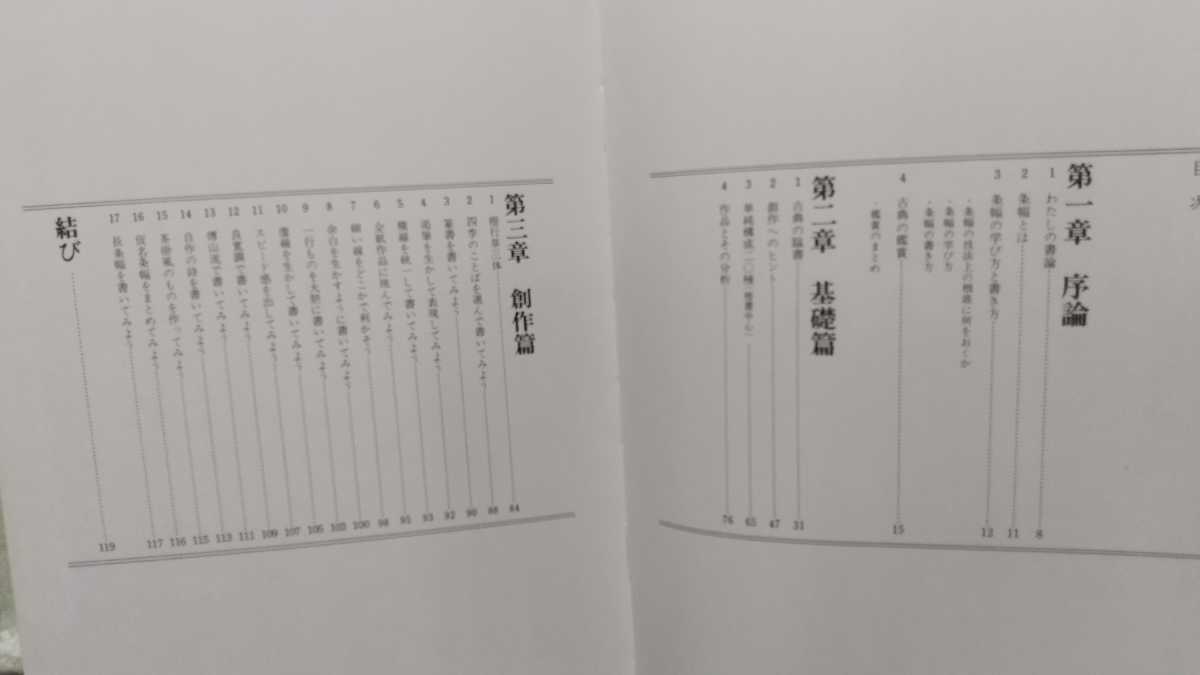 目次
第一章 序論
1 わたしの書論 8
2 条幅とは 11
3 条幅の学び方と書き方 12
・条幅の技法上の根底に何をおくか
・条幅の学び方
・条幅の書き方
4 古典の鑑賞 15
・鑑賞のまとめ
第二章 基礎篇
1 古典の臨書 31
2 創作へのヒント 47
3 単純構成二〇種 65
4 作品とその分析 76
第三章 創作篇
1 楷行草三体 84
2 四季のことばを選んで書いてみよう 88
3 篆書を書いてみよう 90
4 渇筆を生かして表現してみよう 92
5 を統一して書いてみよう 93
6 全紙作品に挑んでみよう 95
7 細い線をどこかで利かそう 98
8 余白を生かすように書いてみよう 100
9 一行ものを大胆に書いてみよう 103
10 を生かして書いてみよう 105
11 スピード感を出してみよう 107
12 良寛調で書いてみよう 109
13 傅山流で書いてみよう 111
14 自作の詩を書いてみよう 113
15 茶掛風のものを作ってみよう 115
16 仮名条幅をまとめてみよう 116
17 長条幅を書いてみよう 117
結び 119